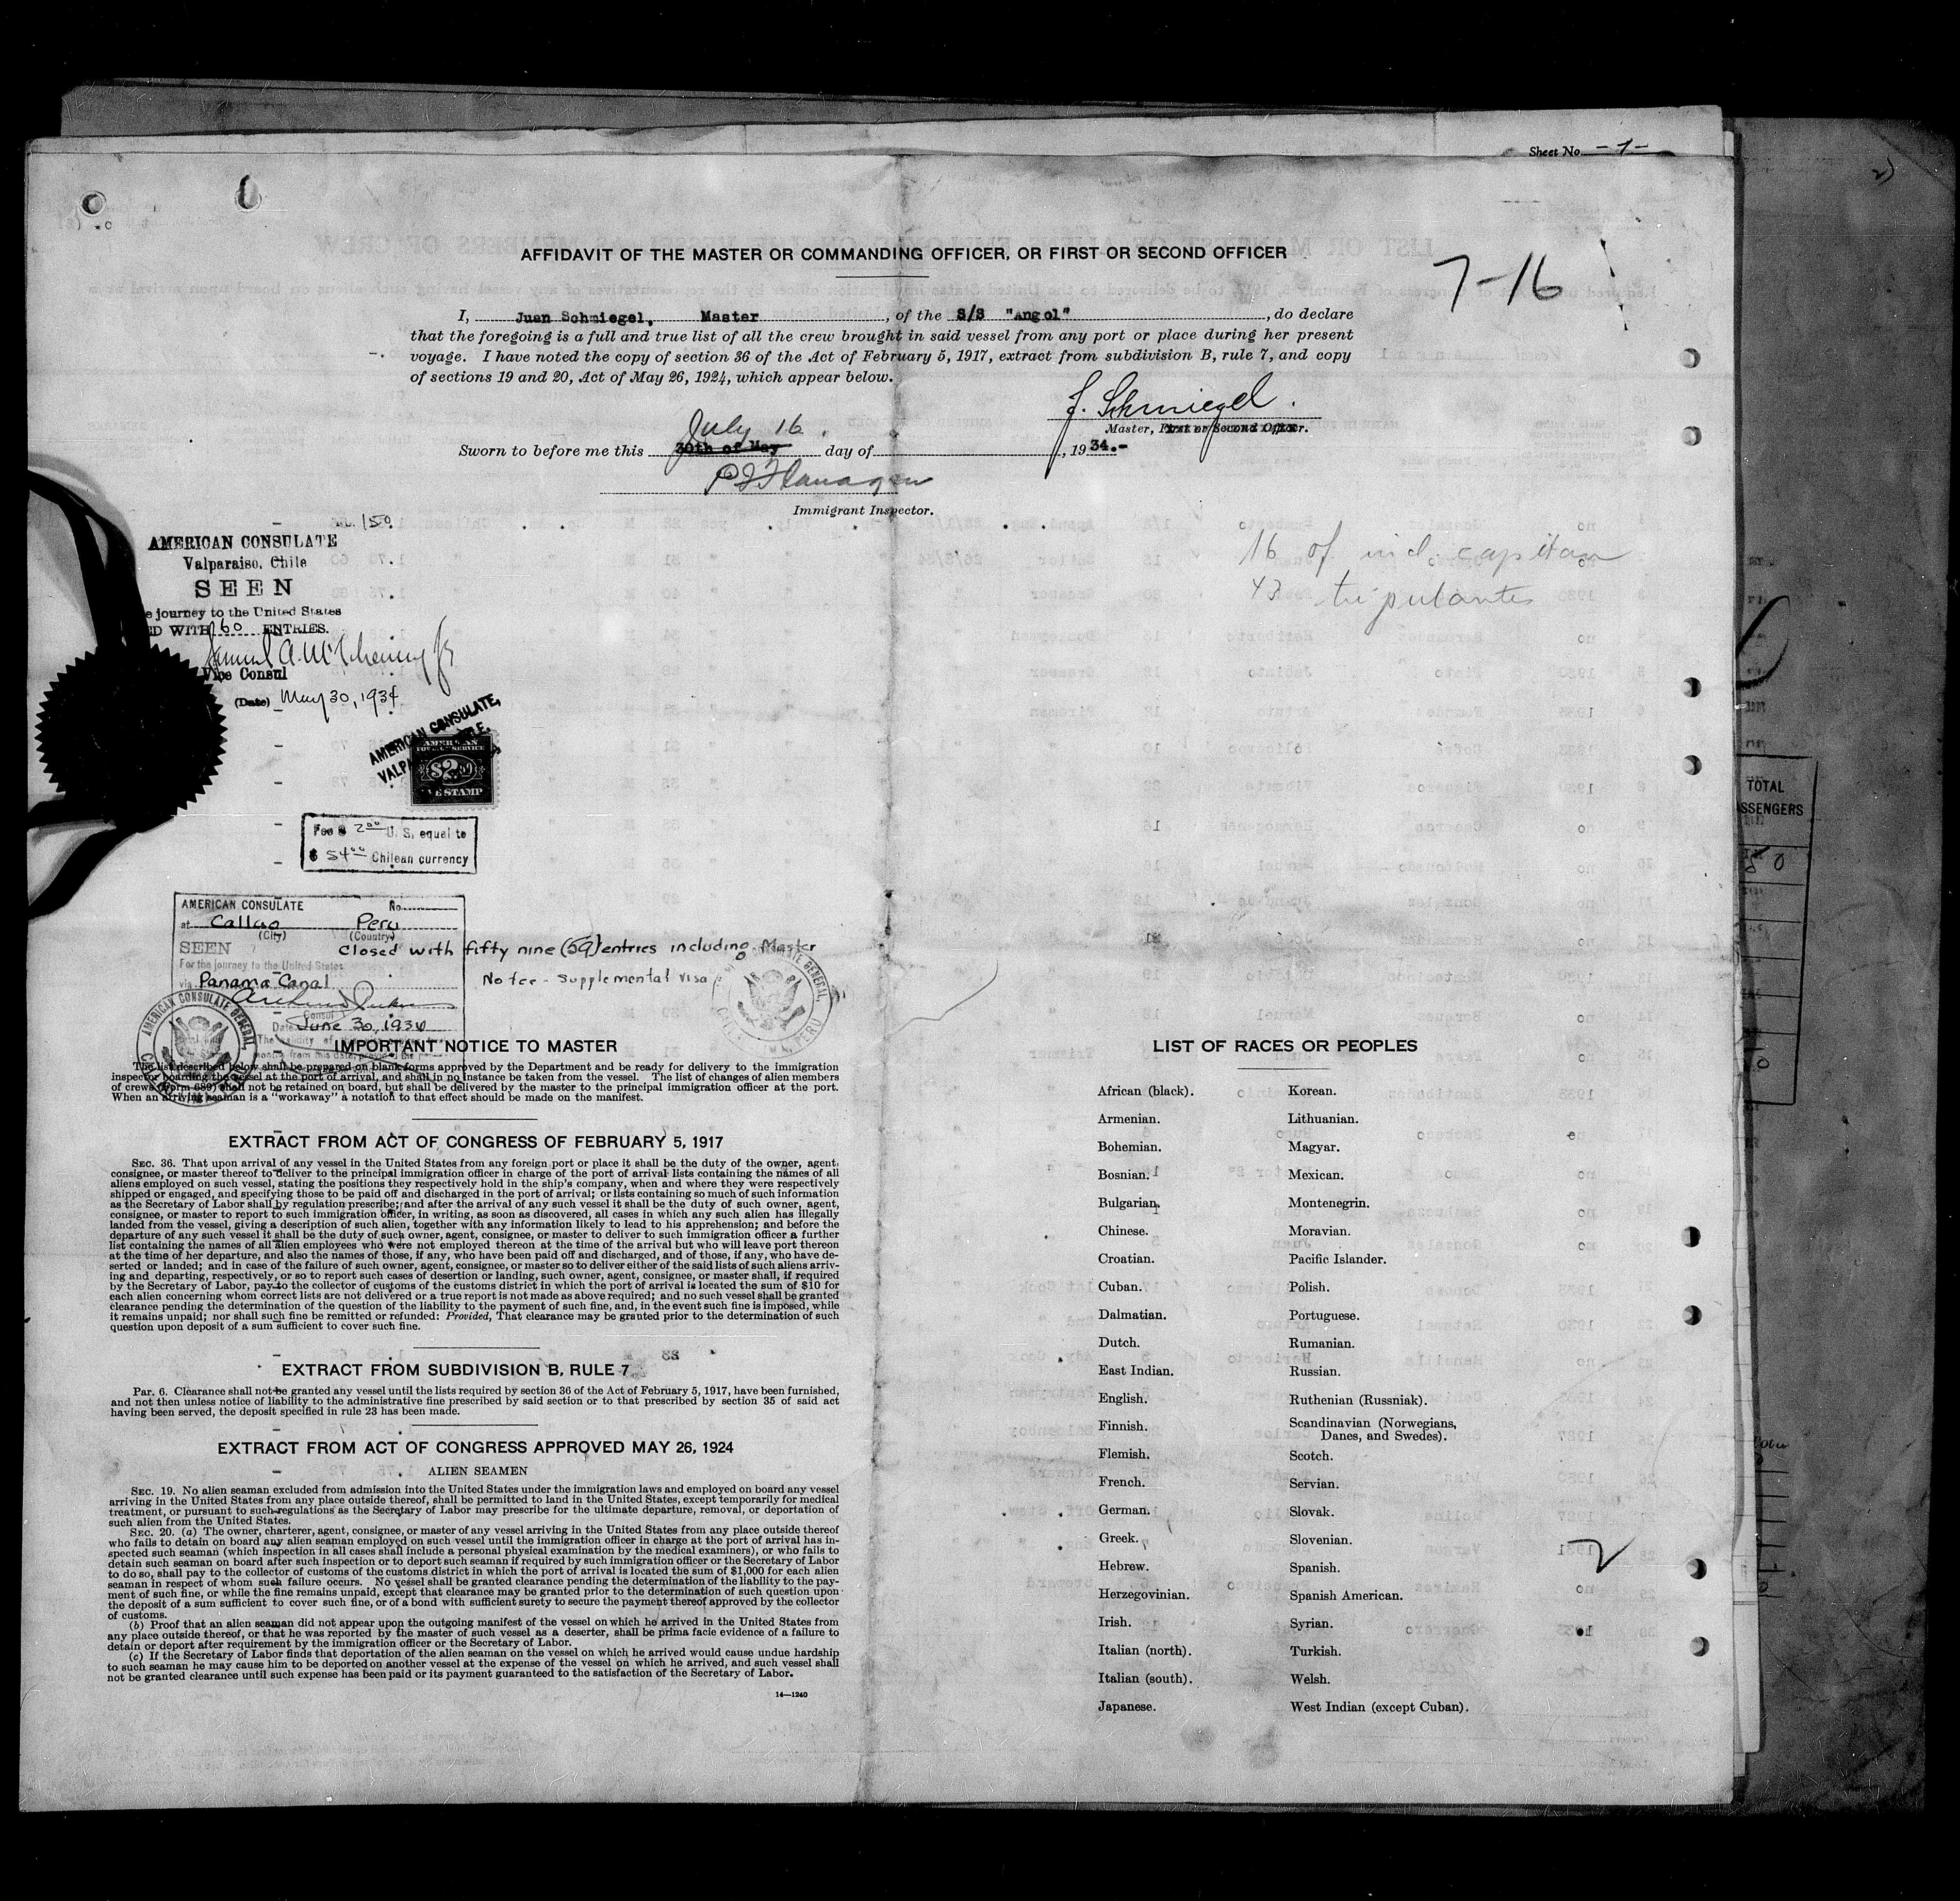 Sheet No -1-
2)
AFFIDAVIT OF THE MASTER OR COMMANDING OFFICER, OR FIRST OR SECOND OFFICER
7-16
I, Juan Schmiegel, Master, of the S/S "Angol", do declare
that the foregoing is a full and true list of all the crew brought in said vessel from any port or place during her present
voyage. I have noted the copy of section 36 of the Act of February 5, 1917, extract from subdivision B, rule 7, and copy
of sections 19 and 20, Act of May 26, 1924, which appear below.
J. Schmiegel.
Master, First or Second Officer.
July 16.
Sworn to before me this 30th of May day of , 1934.-
P J Flanagan
Immigrant Inspector.
No. 150.
AMERICAN CONSULATE
Valparaiso, Chile
SEEN
e journey to the United States
ED WITH 60 ENTRIES.
Vice Consul
(Date) May 30, 1934
16 of incl. capitan
43 tripulantes
AMERICAN CONSULATE,
VALP
AMERICAN
FOREIGN SERVICE
$2.00
FEE STAMP
Fee $ 2.00 U. S. equal to
$ 54.00 Chilean currency
TOTAL
SSENGERS
AMERICAN CONSULATE No.
at Callao Peru
(City) (Country)
SEEN closed with fifty nine (59) entries including Master
For the journey to the United States
via Panama Canal
No fee - Supplemental Visa
Consul
Date June 30, 1934
AMERICAN CONSULATE GENERAL,
IMPORTANT NOTICE TO MASTER
The list described below shall be prepared on blank forms approved by the Department and be ready for delivery to the immigration
inspector boarding the vessel at the port of arrival, and shall in no instance be taken from the vessel. The list of changes of alien members
of crews (Form 689) shall not be retained on board, but shall be delivered by the master to the principal immigration officer at the port.
When an arriving seaman is a "workaway" a notation to that effect should be made on the manifest.
EXTRACT FROM ACT OF CONGRESS OF FEBRUARY 5, 1917
SEC. 36. That upon arrival of any vessel in the United States from any foreign port or place it shall be the duty of the owner, agent,
consignee, or master thereof to deliver to the principal immigration officer in charge of the port of arrival lists containing the names of all
aliens employed on such vessel, stating the positions they respectively hold in the ship's company, when and where they were respectively
shipped or engaged, and specifying those to be paid off and discharged in the port of arrival; or lists containing so much of such information
as the Secretary of Labor shall by regulation prescribe; and after the arrival of any such vessel it shall be the duty of such owner, agent,
consignee, or master to report to such immigration officer, in writing, as soon as discovered, all cases in which any such alien has illegally
landed from the vessel, giving a description of such alien, together with any information likely to lead to his apprehension; and before the
departure of any such vessel it shall be the duty of such owner, agent, consignee, or master to deliver to such immigration officer a further
list containing the names of all alien employees who were not employed thereon at the time of the arrival but who will leave port thereon
at the time of her departure, and also the names of those, if any, who have been paid off and discharged, and of those, if any, who have de-
serted or landed; and in case of the failure of such owner, agent, consignee, or master so to deliver either of the said lists of such aliens arriv-
ing and departing, respectively, or so to report such cases of desertion or landing, such owner, agent, consignee, or master shall, if required
by the Secretary of Labor, pay to the collector of customs of the customs district in which the port of arrival is located the sum of $10 for
each alien concerning whom correct lists are not delivered or a true report is not made as above required; and no such vessel shall be granted
clearance pending the determination of the question of the liability to the payment of such fine, and, in the event such fine is imposed, while
it remains unpaid; nor shall such fine be remitted or refunded: Provided, That clearance may be granted prior to the determination of such
question upon deposit of a sum sufficient to cover such fine.
EXTRACT FROM SUBDIVISION B, RULE 7
Par. 6. Clearance shall not be granted any vessel until the lists required by section 36 of the Act of February 5, 1917, have been furnished,
and not then unless notice of liability to the administrative fine prescribed by said section or to that prescribed by section 35 of said act
having been served, the deposit specified in rule 23 has been made.
EXTRACT FROM ACT OF CONGRESS APPROVED MAY 26, 1924
ALIEN SEAMEN
SEC. 19. No alien seaman excluded from admission into the United States under the immigration laws and employed on board any vessel
arriving in the United States from any place outside thereof, shall be permitted to land in the United States, except temporarily for medical
treatment, or pursuant to such regulations as the Secretary of Labor may prescribe for the ultimate departure, removal, or deportation of
such alien from the United States.
SEC. 20. (a) The owner, charterer, agent, consignee, or master of any vessel arriving in the United States from any place outside thereof
who fails to detain on board any alien seaman employed on such vessel until the immigration officer in charge at the port of arrival has in-
spected such seaman (which inspection in all cases shall include a personal physical examination by the medical examiners), or who fails to
detain such seaman on board after such inspection or to deport such seaman if required by such immigration officer or the Secretary of Labor
to do so, shall pay to the collector of customs of the customs district in which the port of arrival is located the sum of $1,000 for each alien
seaman in respect of whom such failure occurs. No vessel shall be granted clearance pending the determination of the liability to the pay-
ment of such fine, or while the fine remains unpaid, except that clearance may be granted prior to the determination of such question upon
the deposit of a sum sufficient to cover such fine, or of a bond with sufficient surety to secure the payment thereof approved by the collector
of customs.
(b) Proof that an alien seaman did not appear upon the outgoing manifest of the vessel on which he arrived in the United States from
any place outside thereof, or that he was reported by the master of such vessel as a deserter, shall be prima facie evidence of a failure to
detain or deport after requirement by the immigration officer or the Secretary of Labor.
(c) If the Secretary of Labor finds that deportation of the alien seaman on the vessel on which he arrived would cause undue hardship
to such seaman he may cause him to be deported on another vessel at the expense of the vessel on which he arrived, and such vessel shall
not be granted clearance until such expense has been paid or its payment guaranteed to the satisfaction of the Secretary of Labor.
14—1240
LIST OF RACES OR PEOPLES
African (black).
Armenian.
Bohemian.
Bosnian.
Bulgarian.
Chinese.
Croatian.
Cuban.
Dalmatian.
Dutch.
East Indian.
English.
Finnish.
Flemish.
French.
German.
Greek.
Hebrew.
Herzegovinian.
Irish.
Italian (north).
Italian (south).
Japanese.
Korean.
Lithuanian.
Magyar.
Mexican.
Montenegrin.
Moravian.
Pacific Islander.
Polish.
Portuguese.
Rumanian.
Russian.
Ruthenian (Russniak).
Scandinavian (Norwegians,
Danes, and Swedes).
Scotch.
Servian.
Slovak.
Slovenian.
Spanish.
Spanish American.
Syrian.
Turkish.
Welsh.
West Indian (except Cuban).
2